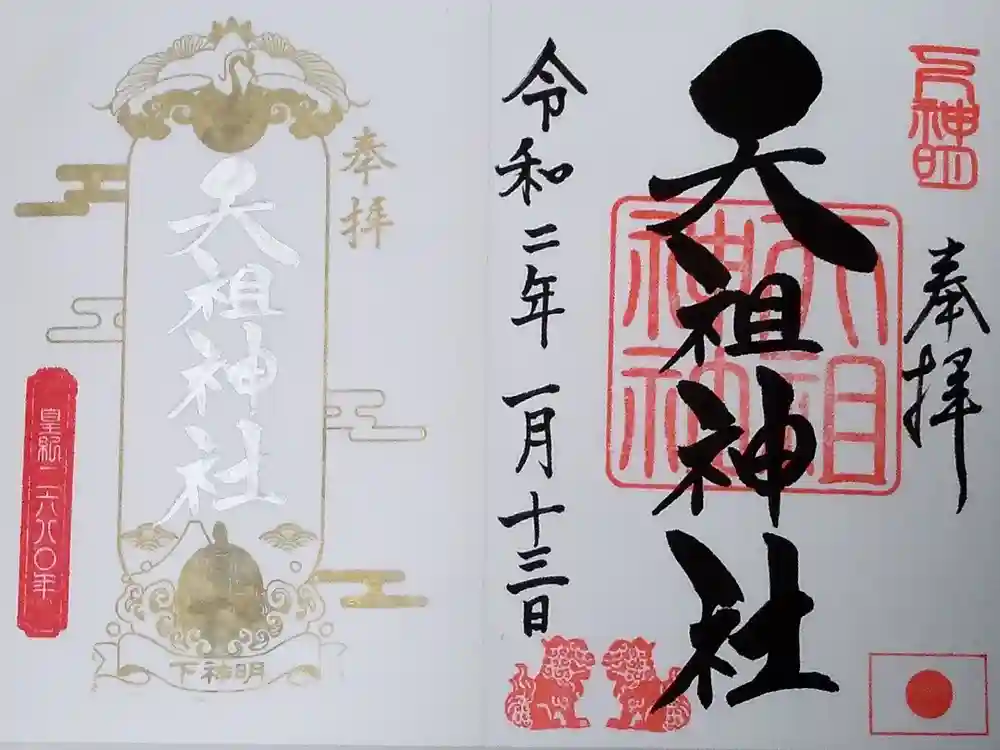 下神明
奉拝
天祖神社
令和二年一月十三日
奉拝
天祖神社
皇紀二六八〇年
下神明